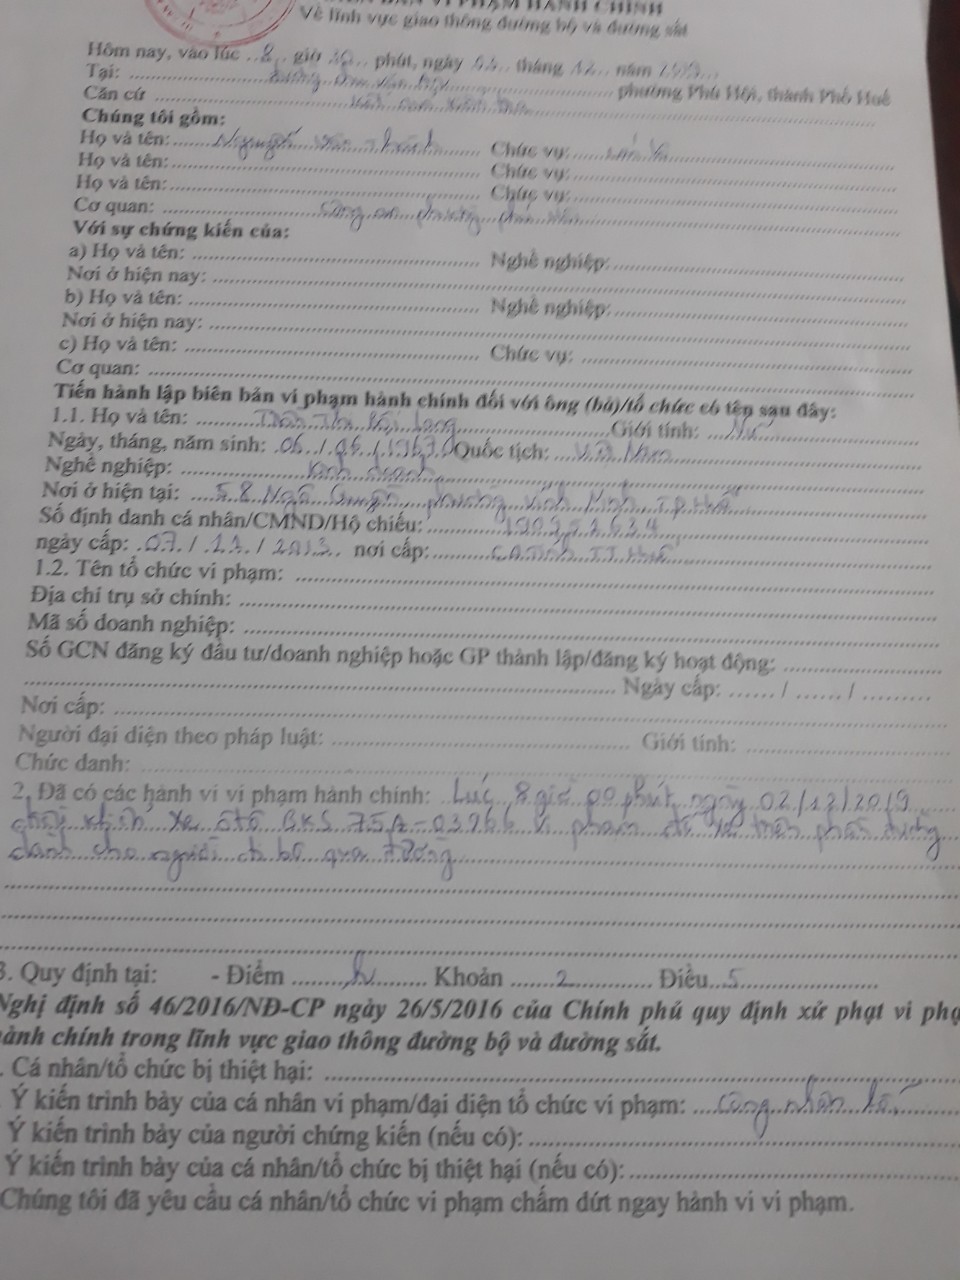 BẢN VI PHẠM HÀNH CHÍNH
Về lĩnh vực giao thông đường bộ và đường sắt
Hôm nay, vào lúc ..8.. giờ ...... phút, ngày ...... tháng 12.. năm ......
Tại: ............ phường Phú Hội, thành Phố Huế
Căn cứ ............
Chúng tôi gồm:
Họ và tên: ...... Văn ............ Chức vụ: ............
Họ và tên: ............ Chức vụ: ............
Họ và tên: ............ Chức vụ: ............
Cơ quan: ............ Công an phường ............
Với sự chứng kiến của:
a) Họ và tên: ............ Nghề nghiệp: ............
Nơi ở hiện nay: ............
b) Họ và tên: ............ Nghề nghiệp: ............
Nơi ở hiện nay: ............
c) Họ và tên: ............ Chức vụ: ............
Cơ quan: ............
Tiến hành lập biên bản vi phạm hành chính đối với ông (bà)/tổ chức có tên sau đây:
1.1. Họ và tên: ...... Thị ............ Giới tính: ...Nữ...
Ngày, tháng, năm sinh: .06../.06./.1967. Quốc tịch: ...Việt Nam...
Nghề nghiệp: ............ Kinh doanh ............
Nơi ở hiện tại: ...58 Ngô Quyền, phường Vĩnh Ninh TP Huế
Số định danh cá nhân/CMND/Hộ chiếu: ............
ngày cấp: .07./.11./.2013. nơi cấp: ...CA Tỉnh TT Huế
1.2. Tên tổ chức vi phạm: ............
Địa chỉ trụ sở chính: ............
Mã số doanh nghiệp: ............
Số GCN đăng ký đầu tư/doanh nghiệp hoặc GP thành lập/đăng ký hoạt động: ............
............ Ngày cấp: ...... / ...... / .........
Nơi cấp: ............
Người đại diện theo pháp luật: ............ Giới tính: ............
Chức danh: ............
2. Đã có các hành vi vi phạm hành chính: Lúc 8 giờ 00 phút, ngày 02/12/2019
xe ôtô BKS 75A-03966 vi phạm để xe trên phần đường
dành cho người đi bộ qua đường
3. Quy định tại: - Điểm ............ Khoản ......2...... Điều...5......
Nghị định số 46/2016/NĐ-CP ngày 26/5/2016 của Chính phủ quy định xử phạt vi phạ
hành chính trong lĩnh vực giao thông đường bộ và đường sắt.
. Cá nhân/tổ chức bị thiệt hại: ............
Ý kiến trình bày của cá nhân vi phạm/đại diện tổ chức vi phạm: ...Công nhận ......
Ý kiến trình bày của người chứng kiến (nếu có): ............
Ý kiến trình bày của cá nhân/tổ chức bị thiệt hại (nếu có): ............
Chúng tôi đã yêu cầu cá nhân/tổ chức vi phạm chấm dứt ngay hành vi vi phạm.